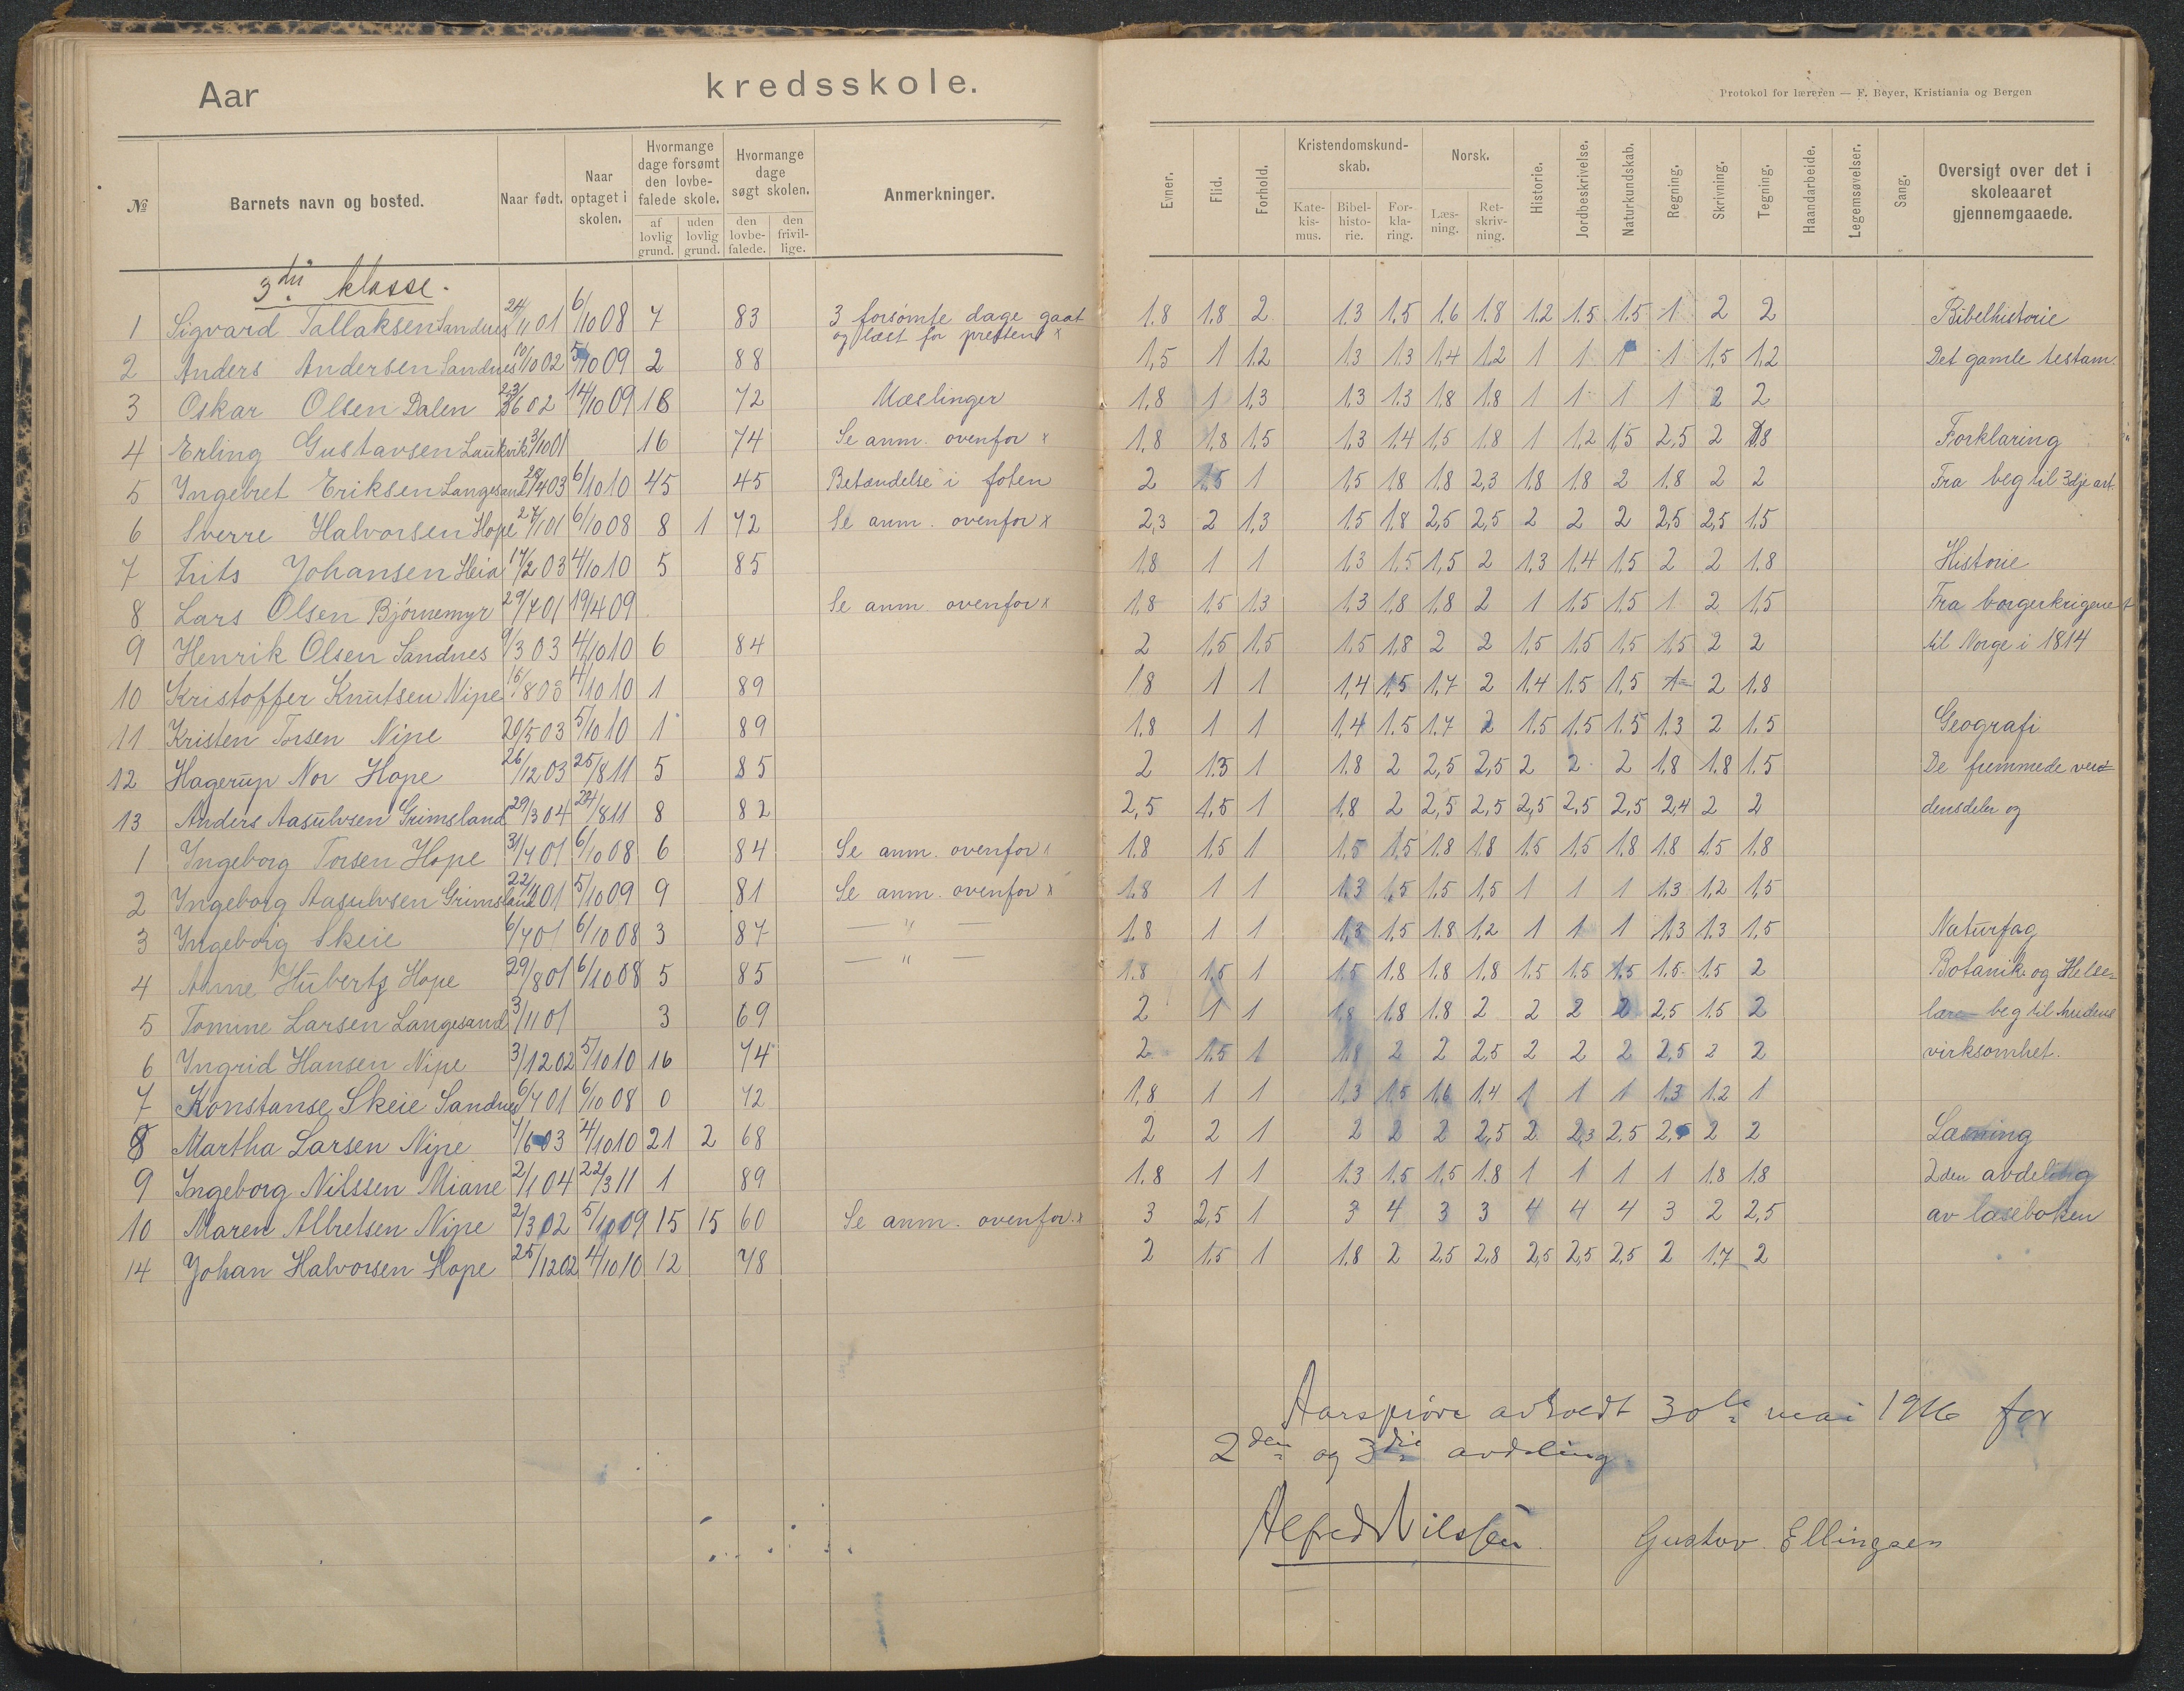 Aar kredsskole.
Protokol for læreren — F. Beyer, Kristiania og Bergen
№ Barnets navn og bosted. Naar født. Naar optaget i skolen. Hvormange dage forsømt den lovbefalede skole. af lovlig grund. uden lovlig grund. Hvormange dage søgt skolen. den lovbefalede. den frivillige. Anmerkninger.
Evner. Flid. Forhold. Kristendomskundskab. Katekismus. Bibelhistorie. Forklaring. Norsk. Læsning. Retskrivning. Historie. Jordbeskrivelse. Naturkundskab. Regning. Skrivning. Tegning. Haandarbeide. Legemsøvelser. Sang. Oversigt over det i skoleaaret gjennemgaaede.
3die klasse.
1 Sigvard Tallaksen Sandnes 24/11 01 6/10 08 7 83 3 forsømte dage gaat og læst for presten x 1.8 1.8 2 1.3 1.5 1.6 1.8 1.2 1.5 1.5 1 2 2 Bibelhistorie
2 Anders Andersen Sandnes 10/10 02 5/10 09 2 88 1,5 1 1.2 1.3 1.3 1,4 1,2 1 1 1 1 1,5 1,2 Det gamle testam.
3 Oskar Olsen Dalen 23/6 02 14/10 09 18 72 Mæslinger 1,8 1 1,3 1,3 1.3 1.8 1.8 1 1 1 1 2 2
4 Erling Gustavsen Laukvik 3/10 01 16 74 Se anm. ovenfor x 1,8 1,8 1.5 1,3 1.4 1,5 1.8 1 1,2 1,5 2,5 2 1.8 Forklaring
5 Ingebret Eriksen Langesand 28/4 03 6/10 10 45 45 Betændelse i foten 2 1.5 1 1,5 1.8 1.8 2,3 1.8 1.8 2 1.8 2 2 Fra beg til 3dje art.
6 Sverre Halvorsen Hope 27/1 01 6/10 08 8 1 72 Se anm. ovenfor x 2,3 2 1,3 1.5 1,8 2,5 2,5 2 2 2 2,5 2,5 1.5
7 Frits Johansen Heia 17/2 03 4/10 10 5 85 1.8 1 1 1.3 1.5 1,5 2 1.3 1.4 1.5 2 2 1.8 Historie
8 Lars Olsen Bjørnemyr 29/7 01 19/4 09 Se anm. ovenfor x 1,8 1,5 1.3 1.3 1,8 1.8 2 1 1.5 1.5 1 2 1.5 Fra borgerkrigene
9 Henrik Olsen Sandnes 9/3 03 4/10 10 6 84 2 1,5 1,5 1.5 1.8 2 2 1.5 1.5 1.5 1.5 2 2 til Norge i 1814
10 Kristoffer Knutsen Nipe 15/8 03 4/10 10 1 89 1.8 1 1 1,4 1.5 1.7 2 1.4 1.5 1,5 1 2 1.8
11 Kristen Torsen Nipe 20/5 03 5/10 10 1 89 1.8 1 1 1.4 1.5 1.7 2 1.5 1.5 1.5 1.3 2 1.5 Geografi
12 Hagerup Nor Hope 26/12 03 25/8 11 5 85 2 1.3 1 1.8 2 2,5 2,5 2 2 2 1.8 1.8 1.5 De fremmede ver-
13 Anders Aasulvsen Grimsland 29/3 04 24/8 11 8 82 2,5 1.5 1 1.8 2 2,5 2,5 2,5 2,5 2,5 2,4 2 2 densdeler og
1 Ingeborg Torsen Hope 31/7 01 6/10 08 6 84 Se anm. ovenfor x 1.8 1.5 1 1.5 1.5 1.8 1.8 1.5 1,5 1.8 1.8 1.5 1.8
2 Ingeborg Aasulvsen Grimsland 22/11 01 5/10 09 9 81 Se anm. ovenfor x 1.8 1 1 1.3 1,5 1.5 1,5 1 1 1 1.3 1,2 1,5
3 Ingeborg Skeie 6/7 01 6/10 08 3 87 — " — 1.8 1 1 1,3 1.5 1.8 1.2 1 1 1 1.3 1.3 1.5 Naturfag
4 Anne Huberts Hope 29/8 01 6/10 08 5 85 — " — 1.8 1.5 1 1.5 1.8 1.8 1.8 1.5 1.5 1.5 1.5 1.5 2 Botanik og Helse-
5 Tomine Larsen Langesand 3/11 01 3 69 2 1 1 1.8 1.8 1.8 2 2 2 2 2,5 1.5 2 lære beg til hudens
6 Ingrid Hansen Nipe 3/12 02 5/10 10 16 74 2 1.5 1 1.8 2 2 2.5 2 2 2 2,5 2 2 virksomhet.
7 Konstanse Skeie Sandnes 6/7 01 6/10 08 0 72 1,8 1 1 1.3 1.5 1.6 1.4 1 1 1 1.3 1.2 1
8 Martha Larsen Nipe 7/6 03 4/10 10 21 2 68 2 2 1 2 2 2 2,5 2 2,3 2.5 2,5 2 2 Læsning
9 Ingeborg Nilssen Miane 2/1 04 22/3 11 1 89 1.8 1 1 1.3 1.5 1.5 1.8 1 1 1 1 1.8 1.8 2den avdeling
10 Maren Albretsen Nipe 2/3 02 5/10 09 15 15 60 Se anm. ovenfor x 3 2,5 1 3 4 3 3 4 4 4 3 2 2,5 av læseboken
14 Johan Halvorsen Hope 25/12 02 4/10 10 12 78 2 1.5 1 1.8 2 2.5 2,8 2,5 2,5 2,5 2 1.7 2
Aarsprøve avholdt 30te mai 1916 for
2den og 3die avdeling
Alfred Nilssen Gustav Ellingsen